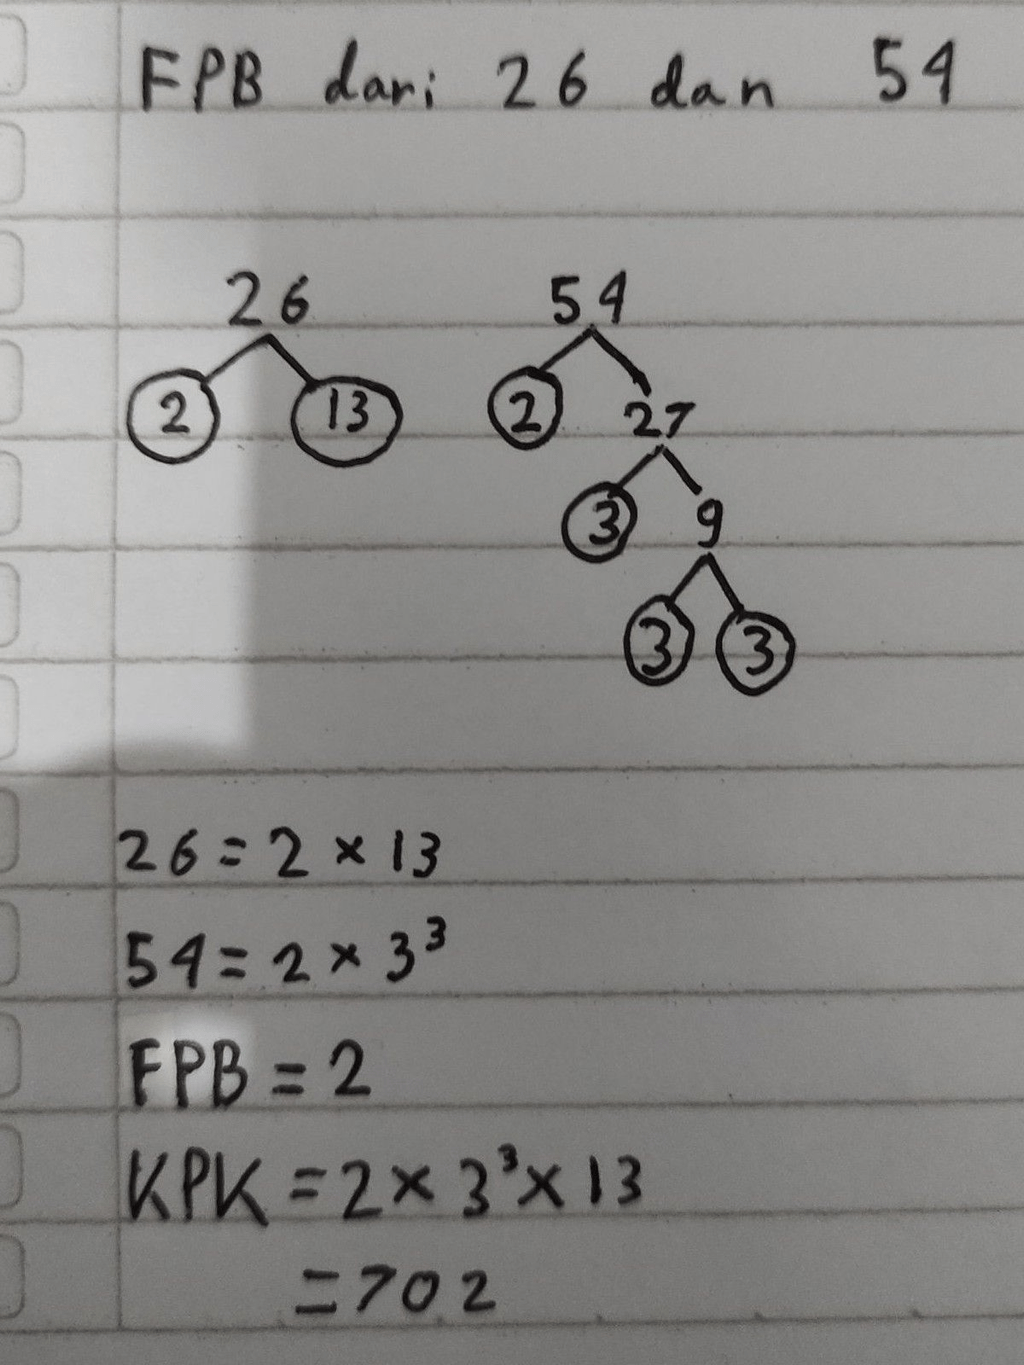 FPB dari 26 dan 54
26 54
2 13 2 27
3 9
3 3
26 = 2 × 13
54 = 2 × 3³
FPB = 2
KPK = 2 × 3³ × 13
= 702